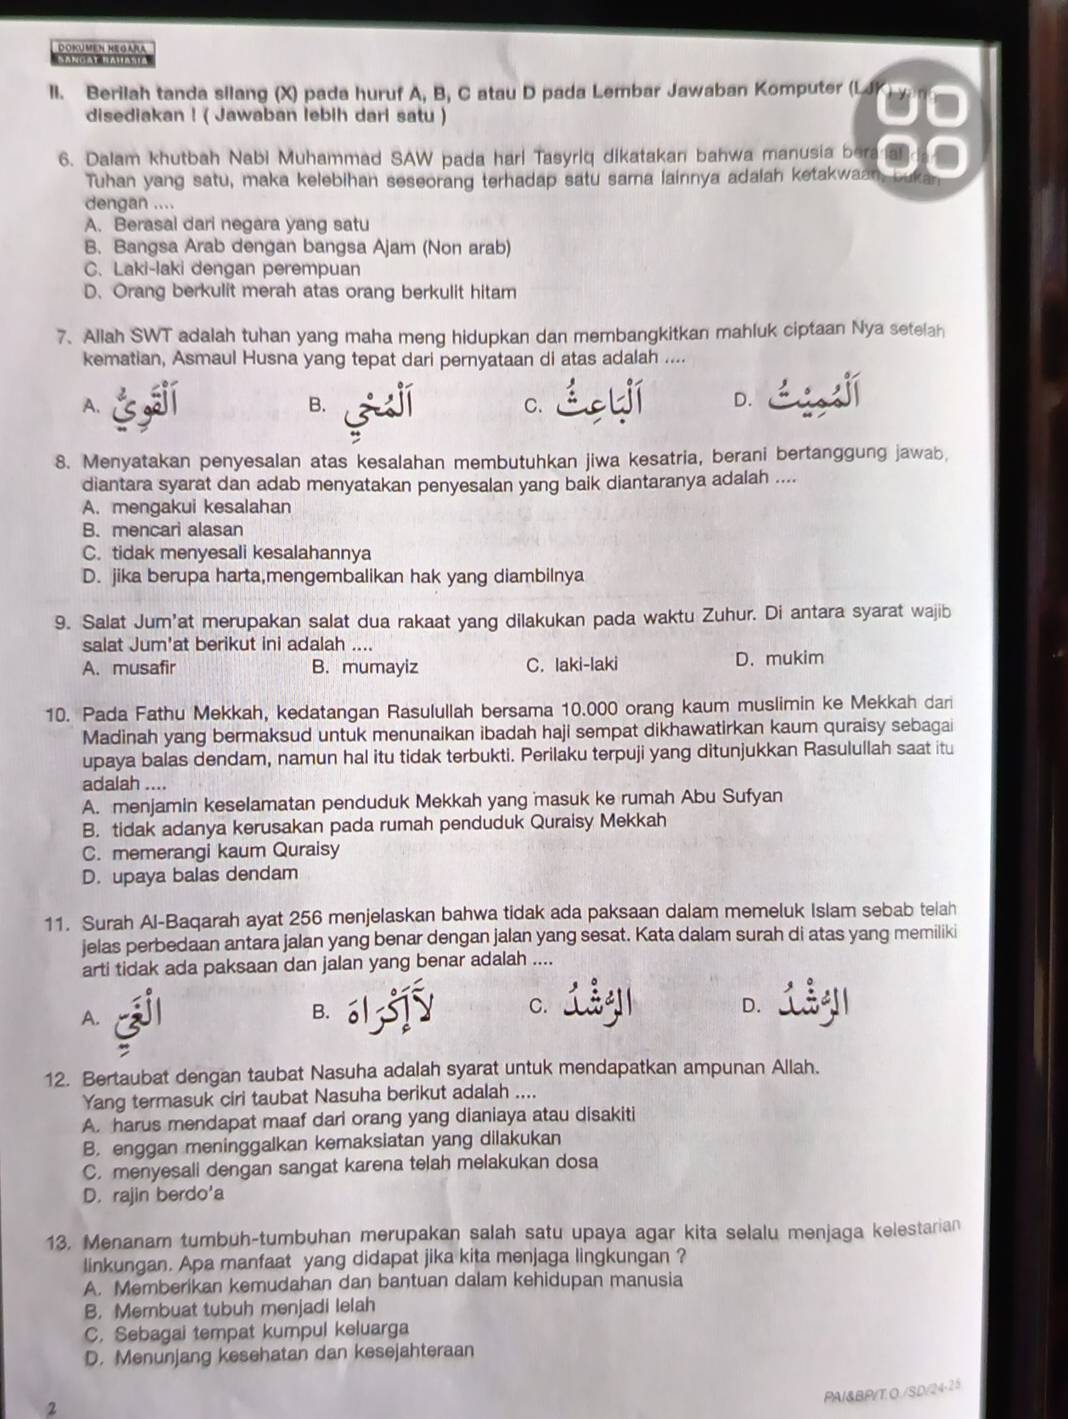 DOKUMEN NEGARA
SANGAT RAHASIA
II. Berilah tanda silang (X) pada huruf A, B, C atau D pada Lembar Jawaban Komputer (LJK) yang
disediakan ! ( Jawaban lebih dari satu )
6. Dalam khutbah Nabi Muhammad SAW pada hari Tasyriq dikatakan bahwa manusia berasal dari
Tuhan yang satu, maka kelebihan seseorang terhadap satu sama lainnya adalah ketakwaan, bukan
dengan ....
A. Berasal dari negara yang satu
B. Bangsa Arab dengan bangsa Ajam (Non arab)
C. Laki-laki dengan perempuan
D. Orang berkulit merah atas orang berkulit hitam
7. Allah SWT adalah tuhan yang maha meng hidupkan dan membangkitkan mahluk ciptaan Nya setelah
kematian, Asmaul Husna yang tepat dari pernyataan di atas adalah ....
A. اَلْقَوِيُّ B. اَلْمُحْيِ C. اَلْبَاعِثُ D. اَلْمُمِيْتُ
8. Menyatakan penyesalan atas kesalahan membutuhkan jiwa kesatria, berani bertanggung jawab,
diantara syarat dan adab menyatakan penyesalan yang baik diantaranya adalah ....
A. mengakui kesalahan
B. mencari alasan
C. tidak menyesali kesalahannya
D. jika berupa harta,mengembalikan hak yang diambilnya
9. Salat Jum'at merupakan salat dua rakaat yang dilakukan pada waktu Zuhur. Di antara syarat wajib
salat Jum'at berikut ini adalah ....
A. musafir B. mumayiz C. laki-laki D. mukim
10. Pada Fathu Mekkah, kedatangan Rasulullah bersama 10.000 orang kaum muslimin ke Mekkah dari
Madinah yang bermaksud untuk menunaikan ibadah haji sempat dikhawatirkan kaum quraisy sebagai
upaya balas dendam, namun hal itu tidak terbukti. Perilaku terpuji yang ditunjukkan Rasulullah saat itu
adalah ....
A. menjamin keselamatan penduduk Mekkah yang masuk ke rumah Abu Sufyan
B. tidak adanya kerusakan pada rumah penduduk Quraisy Mekkah
C. memerangi kaum Quraisy
D. upaya balas dendam
11. Surah Al-Baqarah ayat 256 menjelaskan bahwa tidak ada paksaan dalam memeluk Islam sebab telah
jelas perbedaan antara jalan yang benar dengan jalan yang sesat. Kata dalam surah di atas yang memiliki
arti tidak ada paksaan dan jalan yang benar adalah ....
A. الْغَيِّ B. لَآ اِكْرَاهَ C. الرُّشْدُ D. الرُّشْدُ
12. Bertaubat dengan taubat Nasuha adalah syarat untuk mendapatkan ampunan Allah.
Yang termasuk ciri taubat Nasuha berikut adalah ....
A. harus mendapat maaf dari orang yang dianiaya atau disakiti
B. enggan meninggalkan kemaksiatan yang dilakukan
C. menyesali dengan sangat karena telah melakukan dosa
D. rajin berdo'a
13. Menanam tumbuh-tumbuhan merupakan salah satu upaya agar kita selalu menjaga kelestarian
linkungan. Apa manfaat yang didapat jika kita menjaga lingkungan ?
A. Memberikan kemudahan dan bantuan dalam kehidupan manusia
B. Membuat tubuh menjadi lelah
C. Sebagai tempat kumpul keluarga
D. Menunjang kesehatan dan kesejahteraan
2
PAI&BP/T.O./SD/24-25